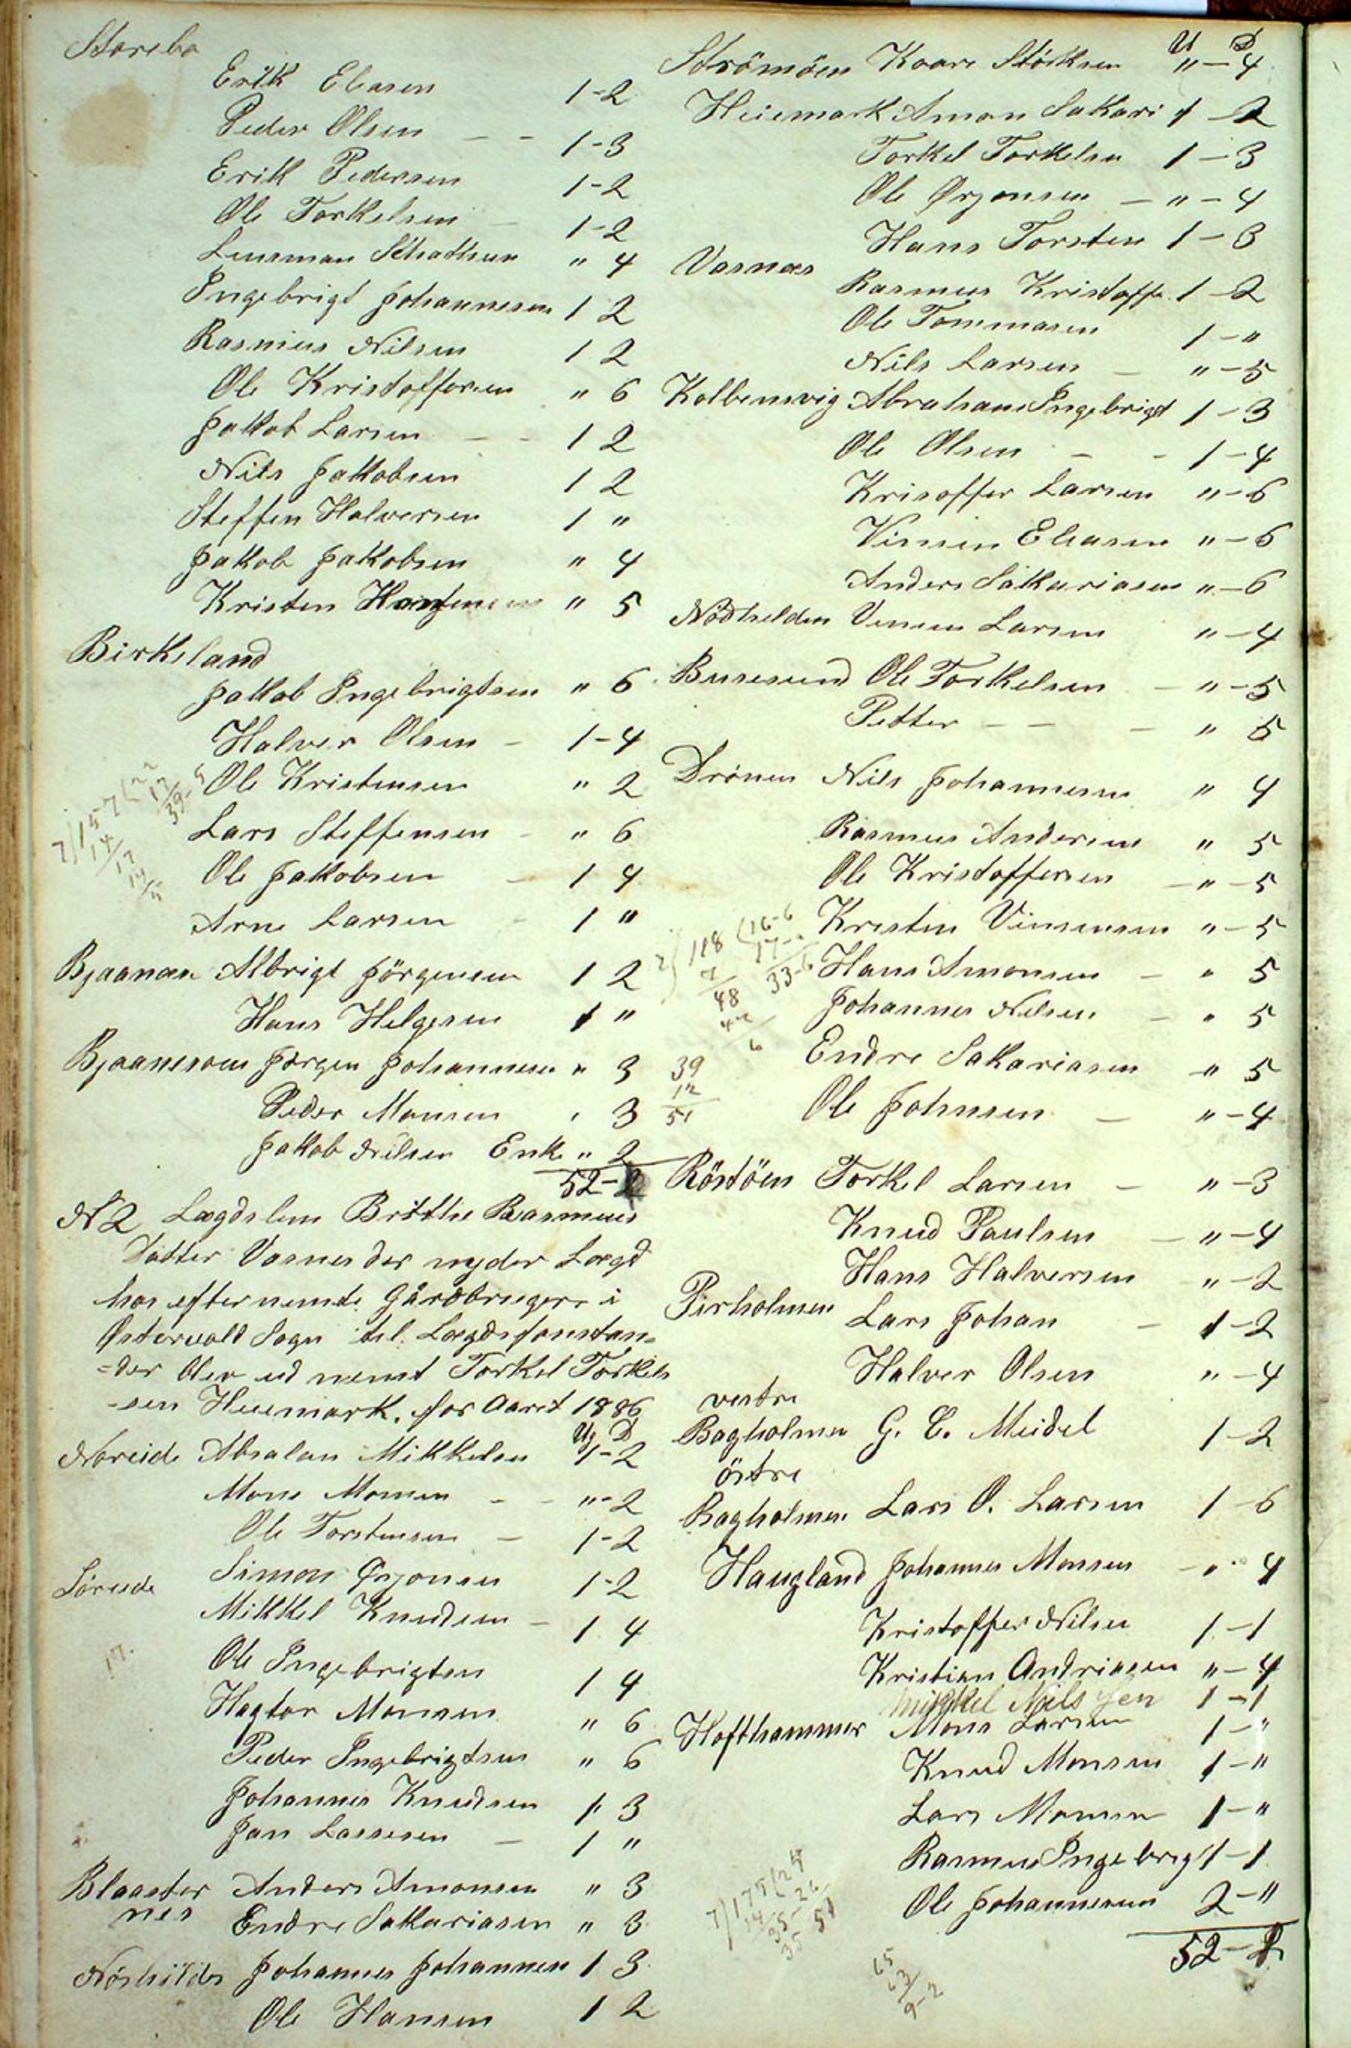 Storebø
Erik Eliasen 1-2
Peder Olsen - - 1-3
Erik Pedersen 1-2
Ole Torkelsen - 1-2
Lensman Schathun " 4
Ingebrigt Johannesen 1 2
Rasmus Nilsen 1 2
Ole Kristoffersen " 6
Jakob Larsen - - 1 2
Nils Jakobsen 1 2
Steffen Halversen 1 "
Jakob Jakobsen " 4
Kristen " 5
Birkeland
Jakob Ingebrigtsen " 6
Halver Olsen - 1-4
Ole Kristensen " 2
Lars Steffensen - " 6
Ole Jakobsen - 1 4
Arne Larsen - 1 "
Bjaanæs Albrigt Jörgensen 1 2
Hans Helgesen 1 "
Jørgen Johannesen " 3
Peder Monsen " 3
Jakob Nilsen Enke " 2
52-2
N 2 Lægdslem Brithe Rasmus
Datter Vasnes der nyder Lægd
hos efternevnte Gårdbrugere i
Østervold Sogn til Lægdsforstan-
=der blev ud nevnt Torkel Torkels
-sen Heiemark. for Aaret 1886
U D
Noreide Absalon Mikkelsen 1-2
Mons Monsen - - "-2
Ole Torstensen - 1-2
Söreide Simon Ørjansen 1-2
Mikkel Knudsen - 1 4
Ole Ingebrigtsen 1 4
17.
Hagtor Monsen " 6
Peder Ingebrigtsen " 6
Johannes Knudsen 1 3
Jan Lassesen - 1 "
Blaaster Anders Amonsen " 3
nes Endre Sakariasen " 3
Johannes Johannesen 1 3
Ole Hansen 1 2
U D
Strömöen Kaare "-4
Heiemark Amon Sakari 1-2
Torkel Torkelsen 1-3
Ole Ørjansen - "-4
Hans Torsten 1-3
Vasnæs Rasmus Kristoffe 1-2
Ole Tommasen 1-"
Nils Larsen - "-5
Kolbensvig Abraham Ingebrigt 1-3
Ole Olsen - - 1-4
Krisoffer Larsen "-6
Vinsen Eliasen "-6
Anders Sakariasen "-6
Vinsen Larsen "-4
Busesund Ole Torkelsen - "-5
Petter - - - " 5
Drönen Nils Johannesen " 4
Rasmus Andersen " 5
Ole Kristoffersen -"-5
Kristen Vinsensen "-5
Hans Amonsen - " 5
Johannes Nilsen - " 5
Endre Sakariasen -" 5
39
12
51
Ole Johnsen - "-4
Röstöen Torkel Larsen - "-3
Knud Paulsen - "-4
Hans Halversen "-2
Pirholmen Lars Johan - 1-2
Halver Olsen "-4
vestre
Bagholmen G. C. Meidel 1-2
östre
Bagholmen Lars O. Larsen 1-6
Haugland Johannes Monsen -" 4
Kristoffer Nilsen 1-1
Kristian Andriasen "-4
Mikkel Nilssen 1-1
Hofthammer Mons Larsen 1-"
Knud Monsen 1-"
Lars Monsen 1-"
Rasmus Ingebrigt 1-1
Ole Johannesen 2-"
52-2